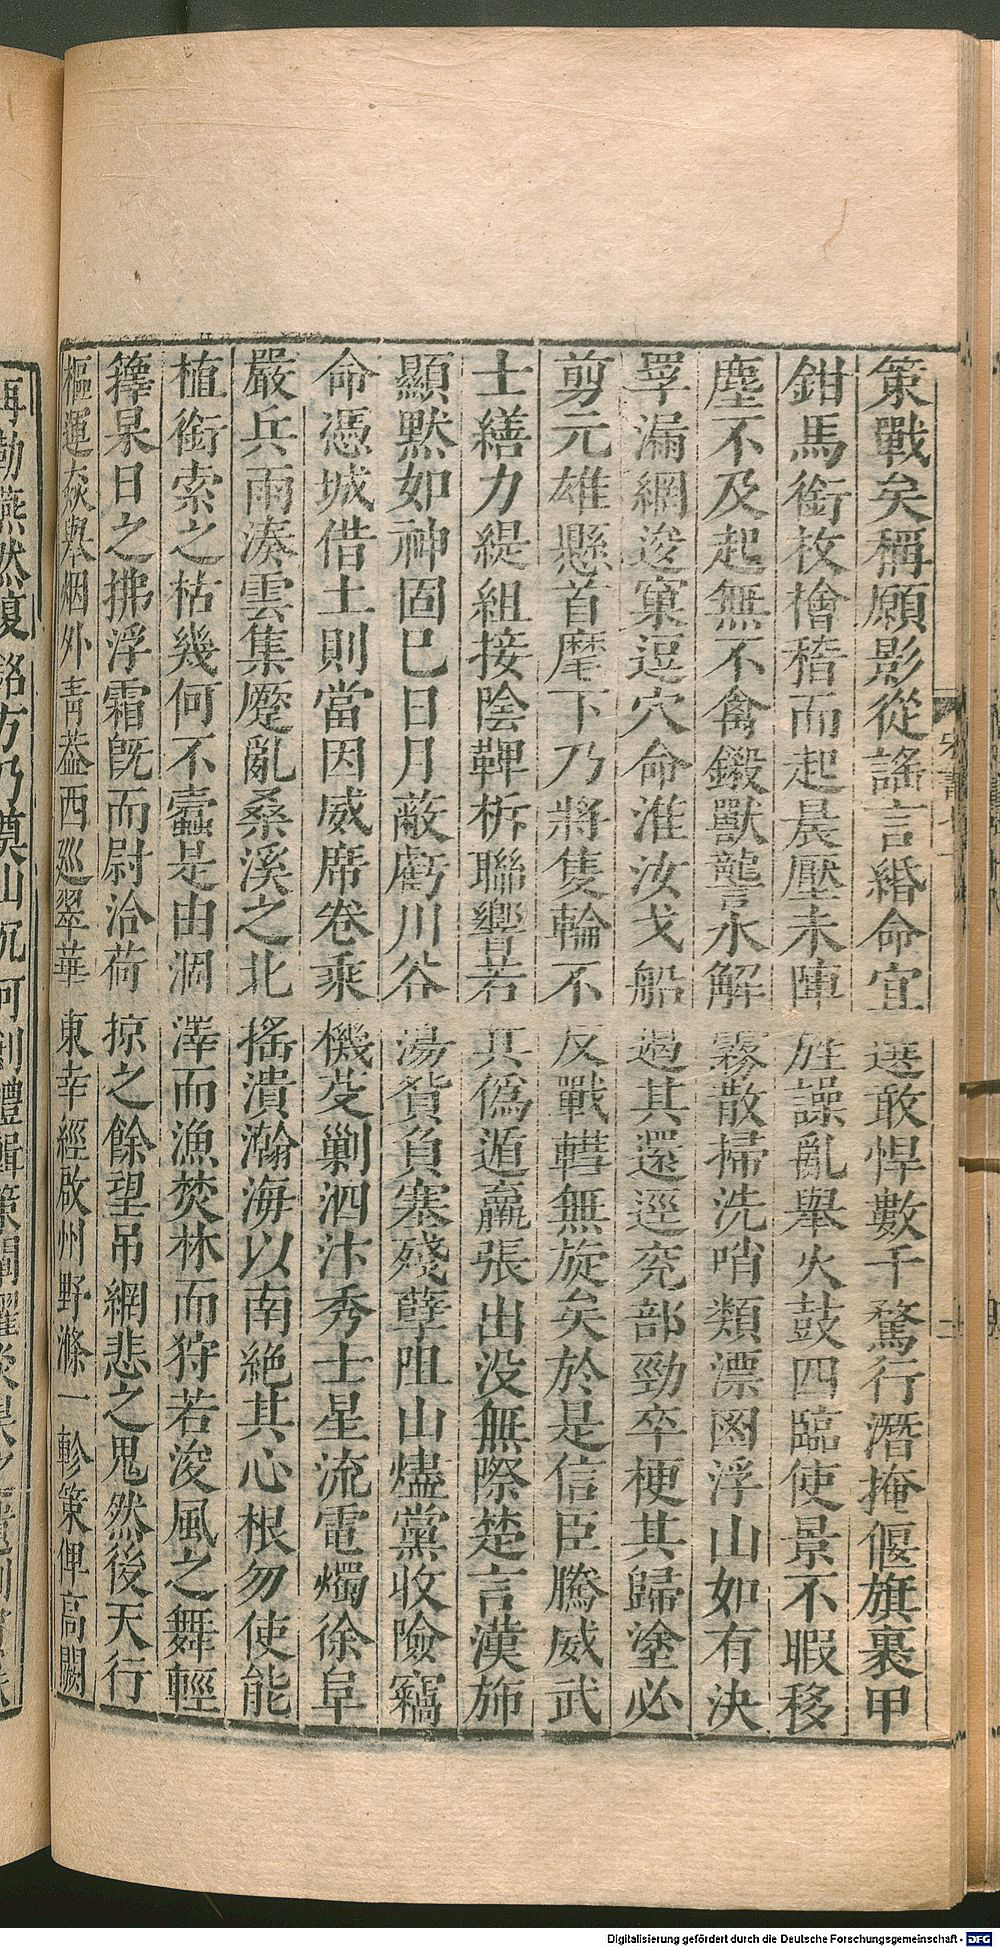 策戰矣稱願影從謠言緡命宜選敢悍數千騖行潛掩偃旗裹甲
鉗馬銜枚檜稽而起晨壓未陣旌譟亂舉火鼓四臨使景不暇移
塵不及起無不禽鎩獸讋氷解霧散掃洗哨類漂鹵浮山如有決
罦漏網逡窠逗穴命淮汝戈船遏其還逕兖部勁卒梗其歸塗必
剪元雄懸首麾下乃將隻輪不反戰轊無旋矣於是信臣騰威武
士繕力緹組接陰鞞柝聯響若其偽遁羸張出没無際楚言漢斾
顯默如神固已日月蔽虧川谷蕩貿負塞殘孽阻山燼黨收險竊
命憑城借土則當因威席卷乘機芟剿泗汴秀士星流電燭徐阜
嚴兵雨湊雲集蹙亂桑溪之北搖潰瀚海以南絶其心根勿使能
植銜索之枯幾何不蠹是由涸澤而漁焚林而狩若浚風之舞輕
籜杲日之拂浮霜旣而尉洽荷掠之餘望吊網悲之鬼然後天行
樞運猋舉烟外青葢西巡翠華東幸經啟州野滌一軫策俾高闕
再勒燕然復銘方乃奠山沉河創禮輯策
Digitalisierung gefördert durch die Deutsche Forschungsgemeinschaft - DFG